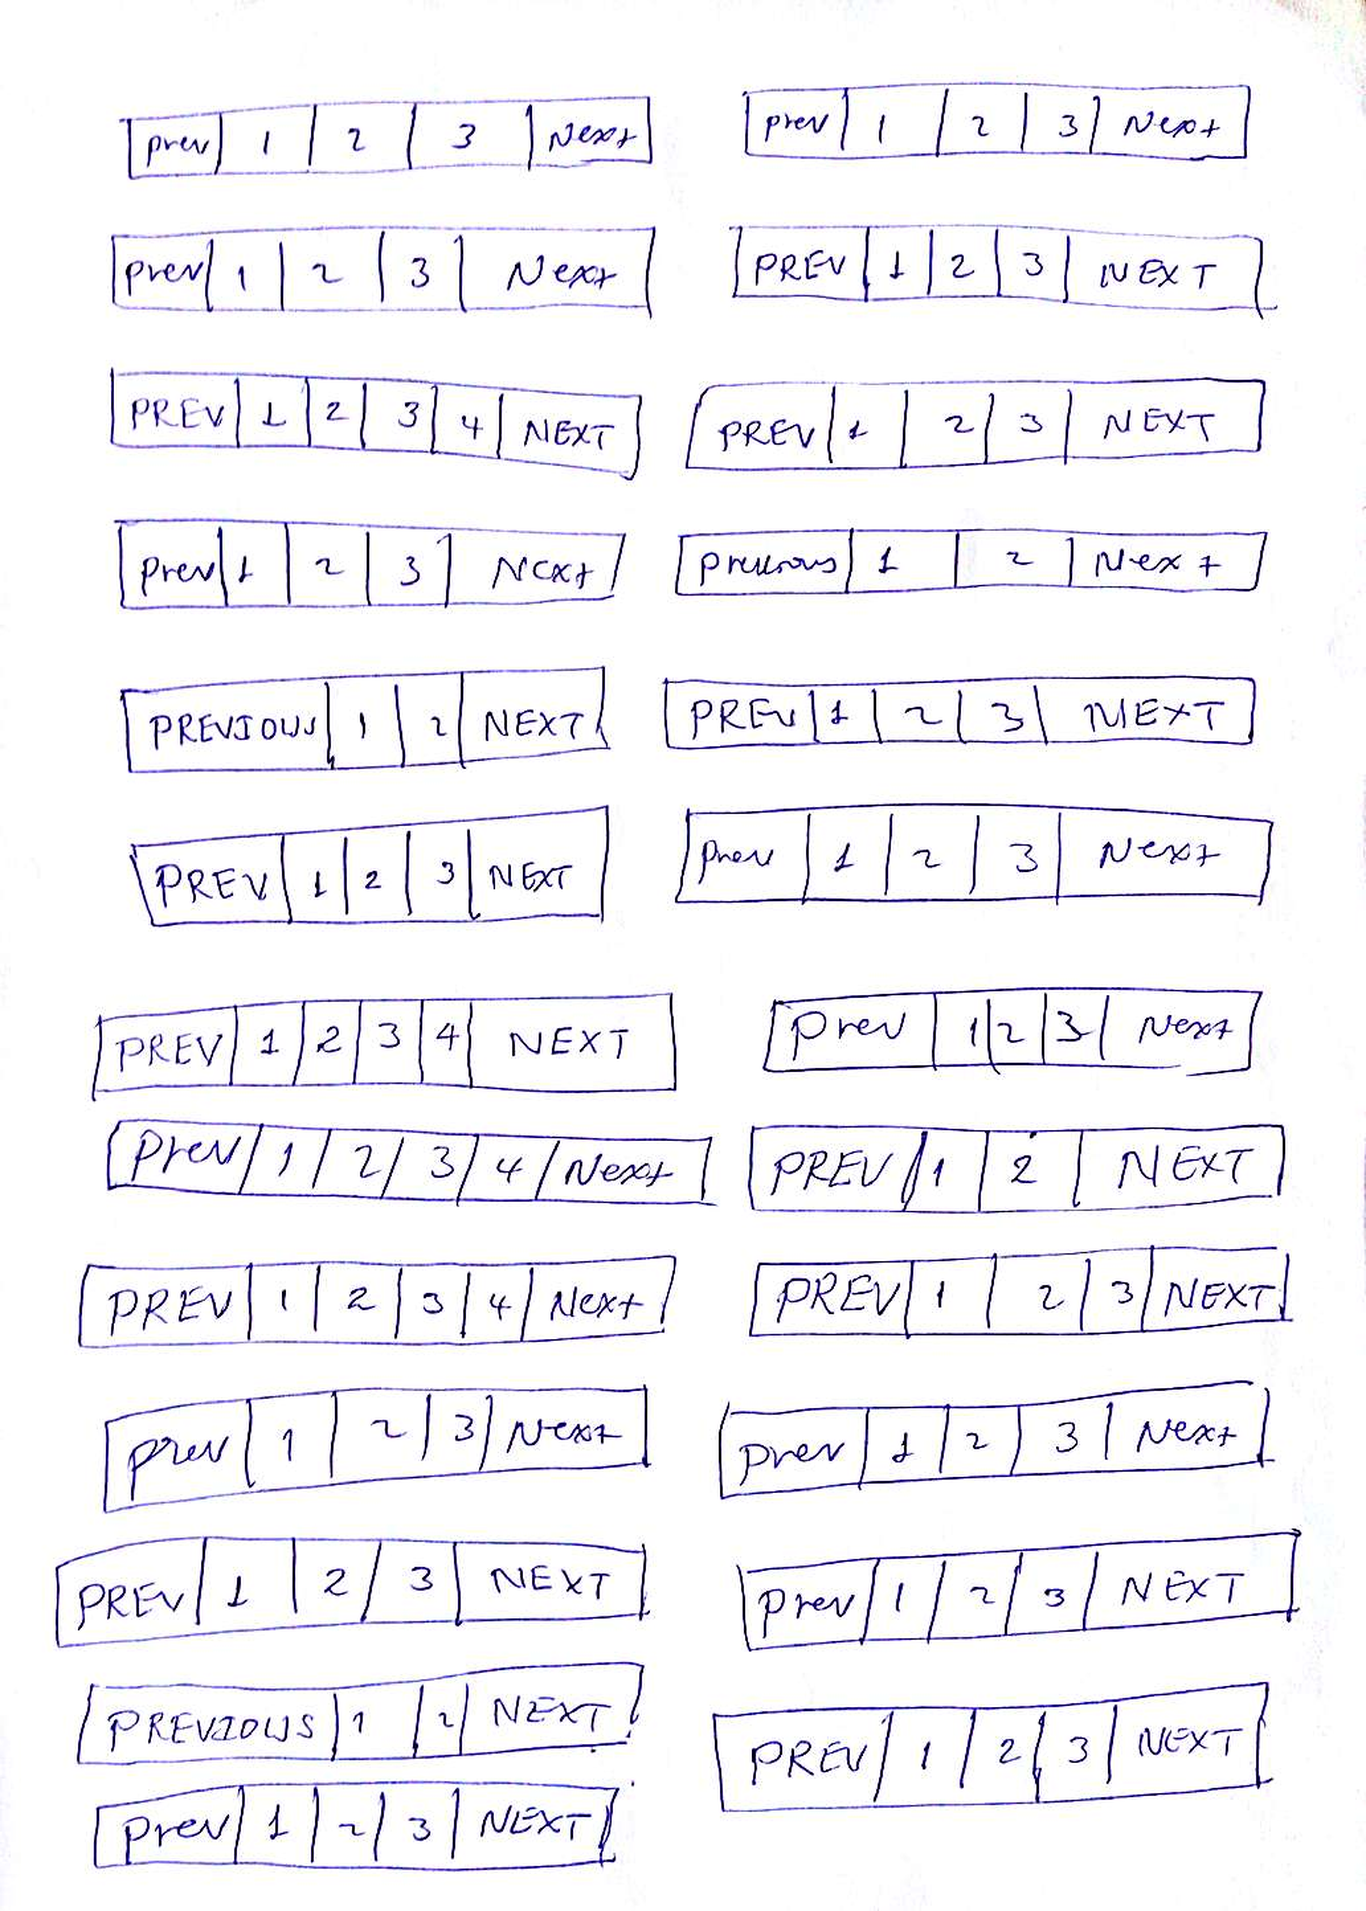 prev 1 2 3 Next
prev 1 2 3 Next
prev 1 2 3 Next
PREV 1 2 3 NEXT
PREV 1 2 3 4 NEXT
PREV 1 2 3 NEXT
prev 1 2 3 Next
previous 1 2 Next
PREVIOUS 1 2 NEXT
PREV 1 2 3 NEXT
PREV 1 2 3 NEXT
prev 1 2 3 Next
PREV 1 2 3 4 NEXT
prev 1 2 3 Next
prev 1 2 3 4 Next
PREV 1 2 NEXT
PREV 1 2 3 4 Next
PREV 1 2 3 NEXT
prev 1 2 3 Next
prev 1 2 3 Next
PREV 1 2 3 NEXT
prev 1 2 3 NEXT
PREVIOUS 1 2 NEXT
PREV 1 2 3 NEXT
prev 1 2 3 NEXT